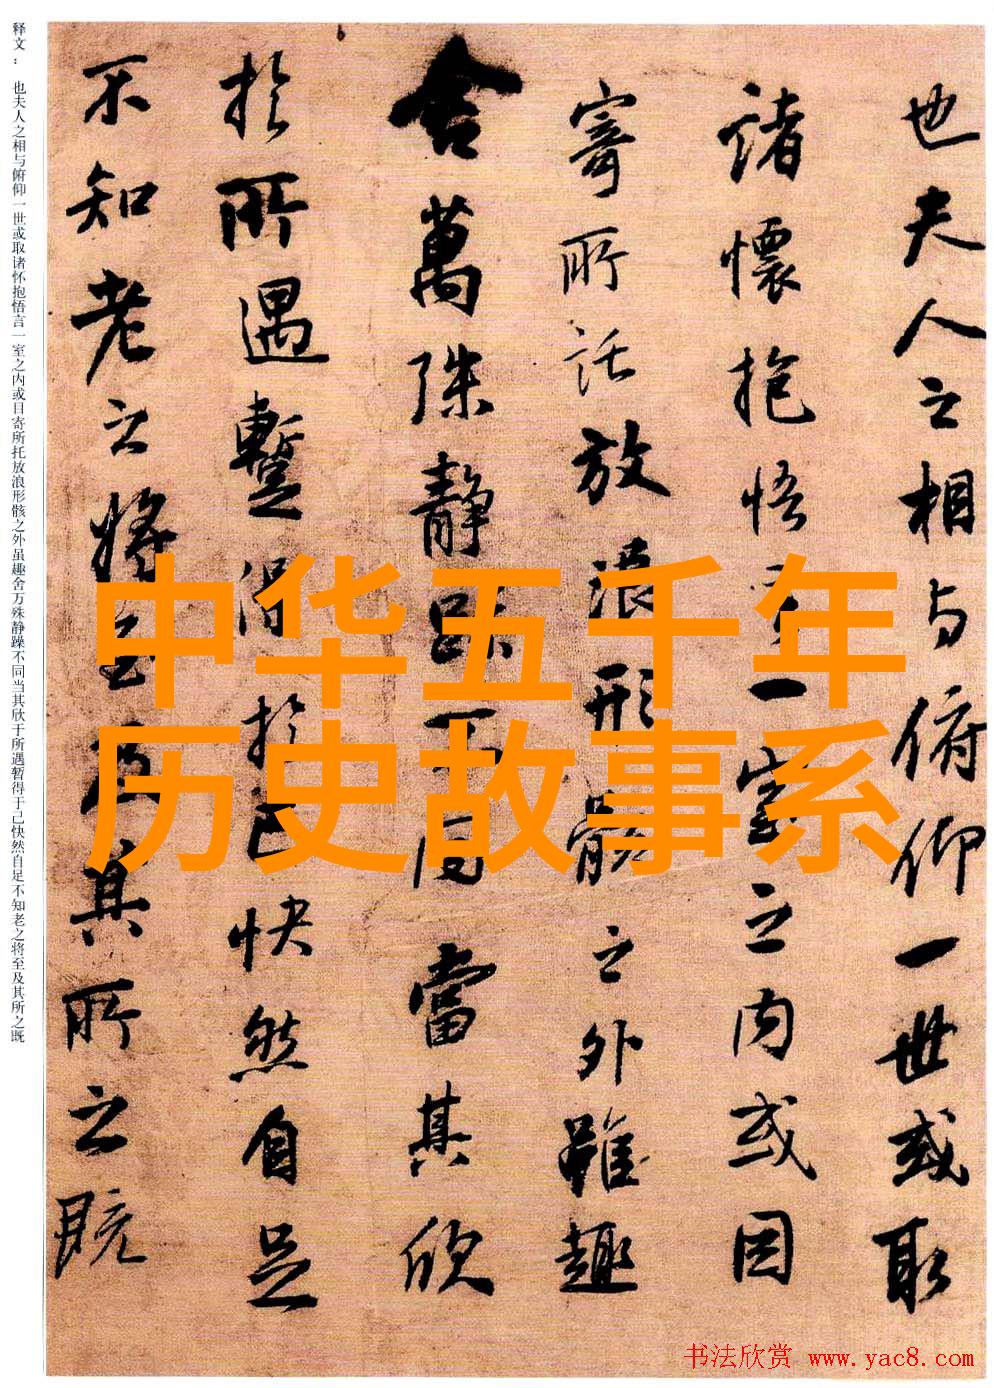 也夫人之相与俯仰一世或取
諸懷抱悟言一室之内或因
寄所託放浪形骸之外雖趣
舍萬殊静躁不同當其欣
於所遇蹔得於己快然自足
不知老之將至及其所之既
释文：也夫人之相与俯仰一世或取诸怀抱悟言一室之内或目寄所托放浪形骸之外虽趣舍万殊静躁不同当其欣于所遇暂得于己快然自足不知老之将至及其所之既
中华五千年
历史故事系
书法欣赏 www.yac8.com